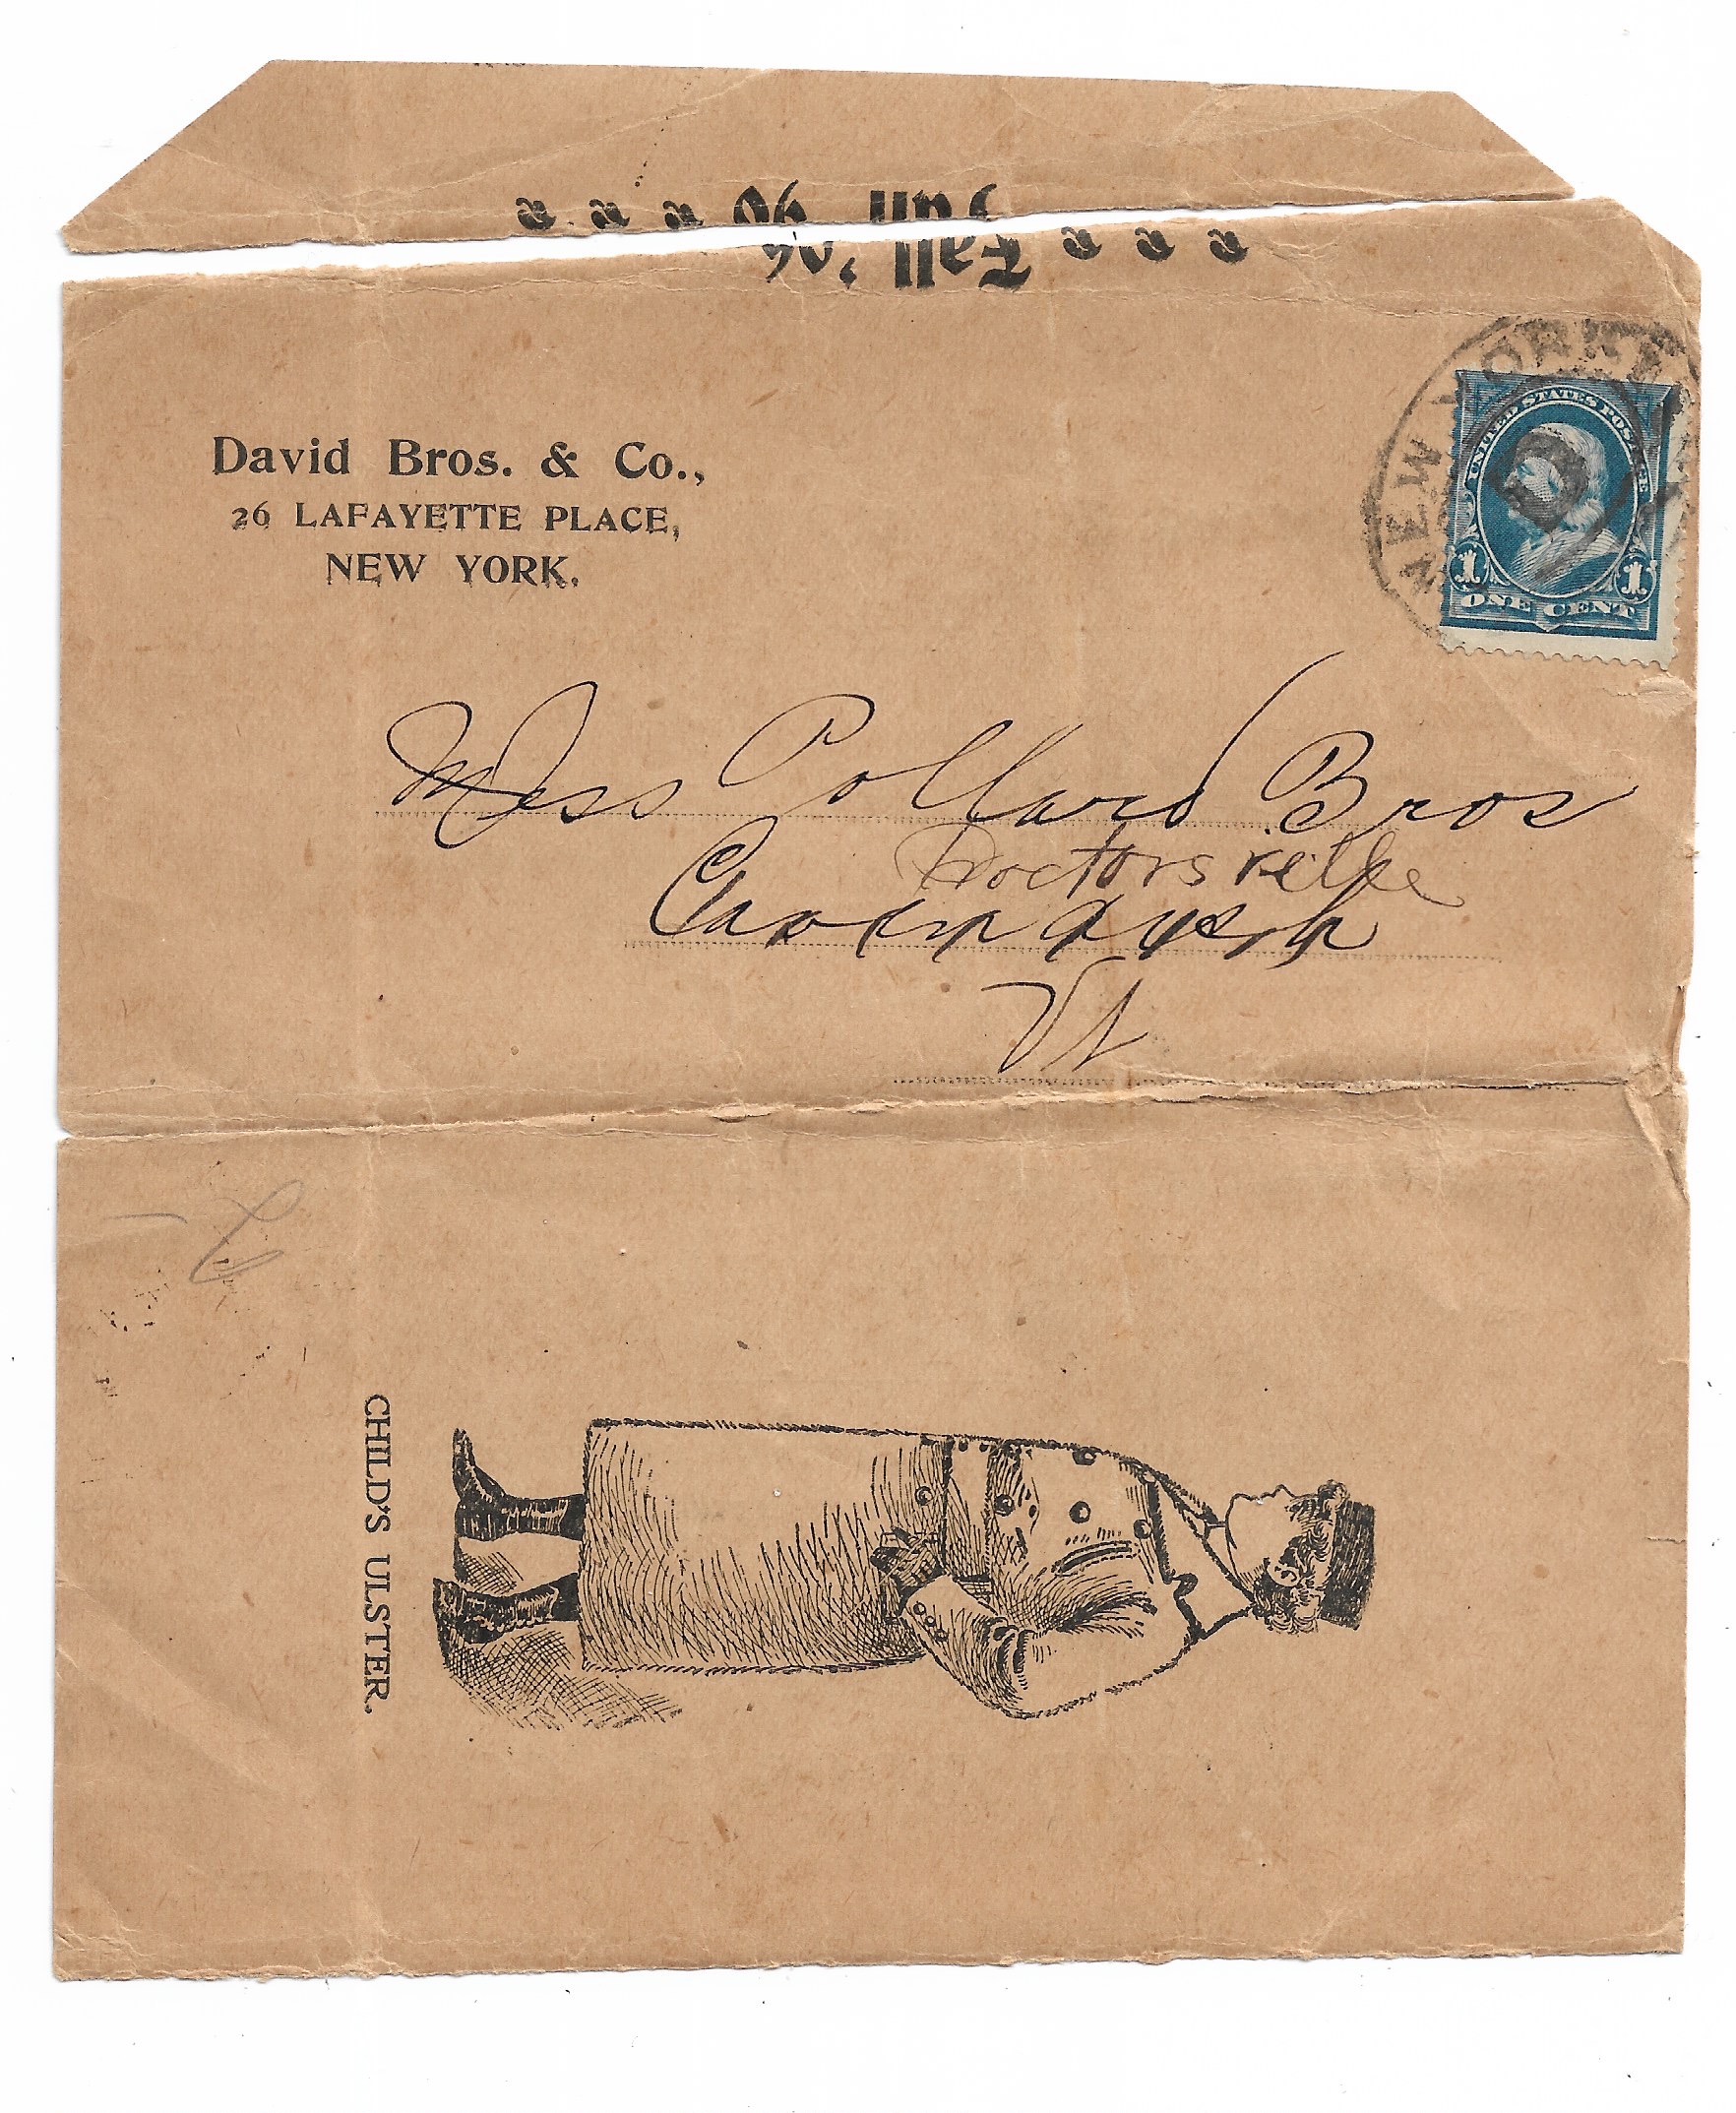 Fall '96
David Bros. & Co.,
26 LAFAYETTE PLACE,
NEW YORK.
NEW YORK
D
UNITED STATES POSTAGE
1 1
ONE CENT
Mess Pollard Bros
Proctorsville
Cavendish
Vt
CHILD'S ULSTER.